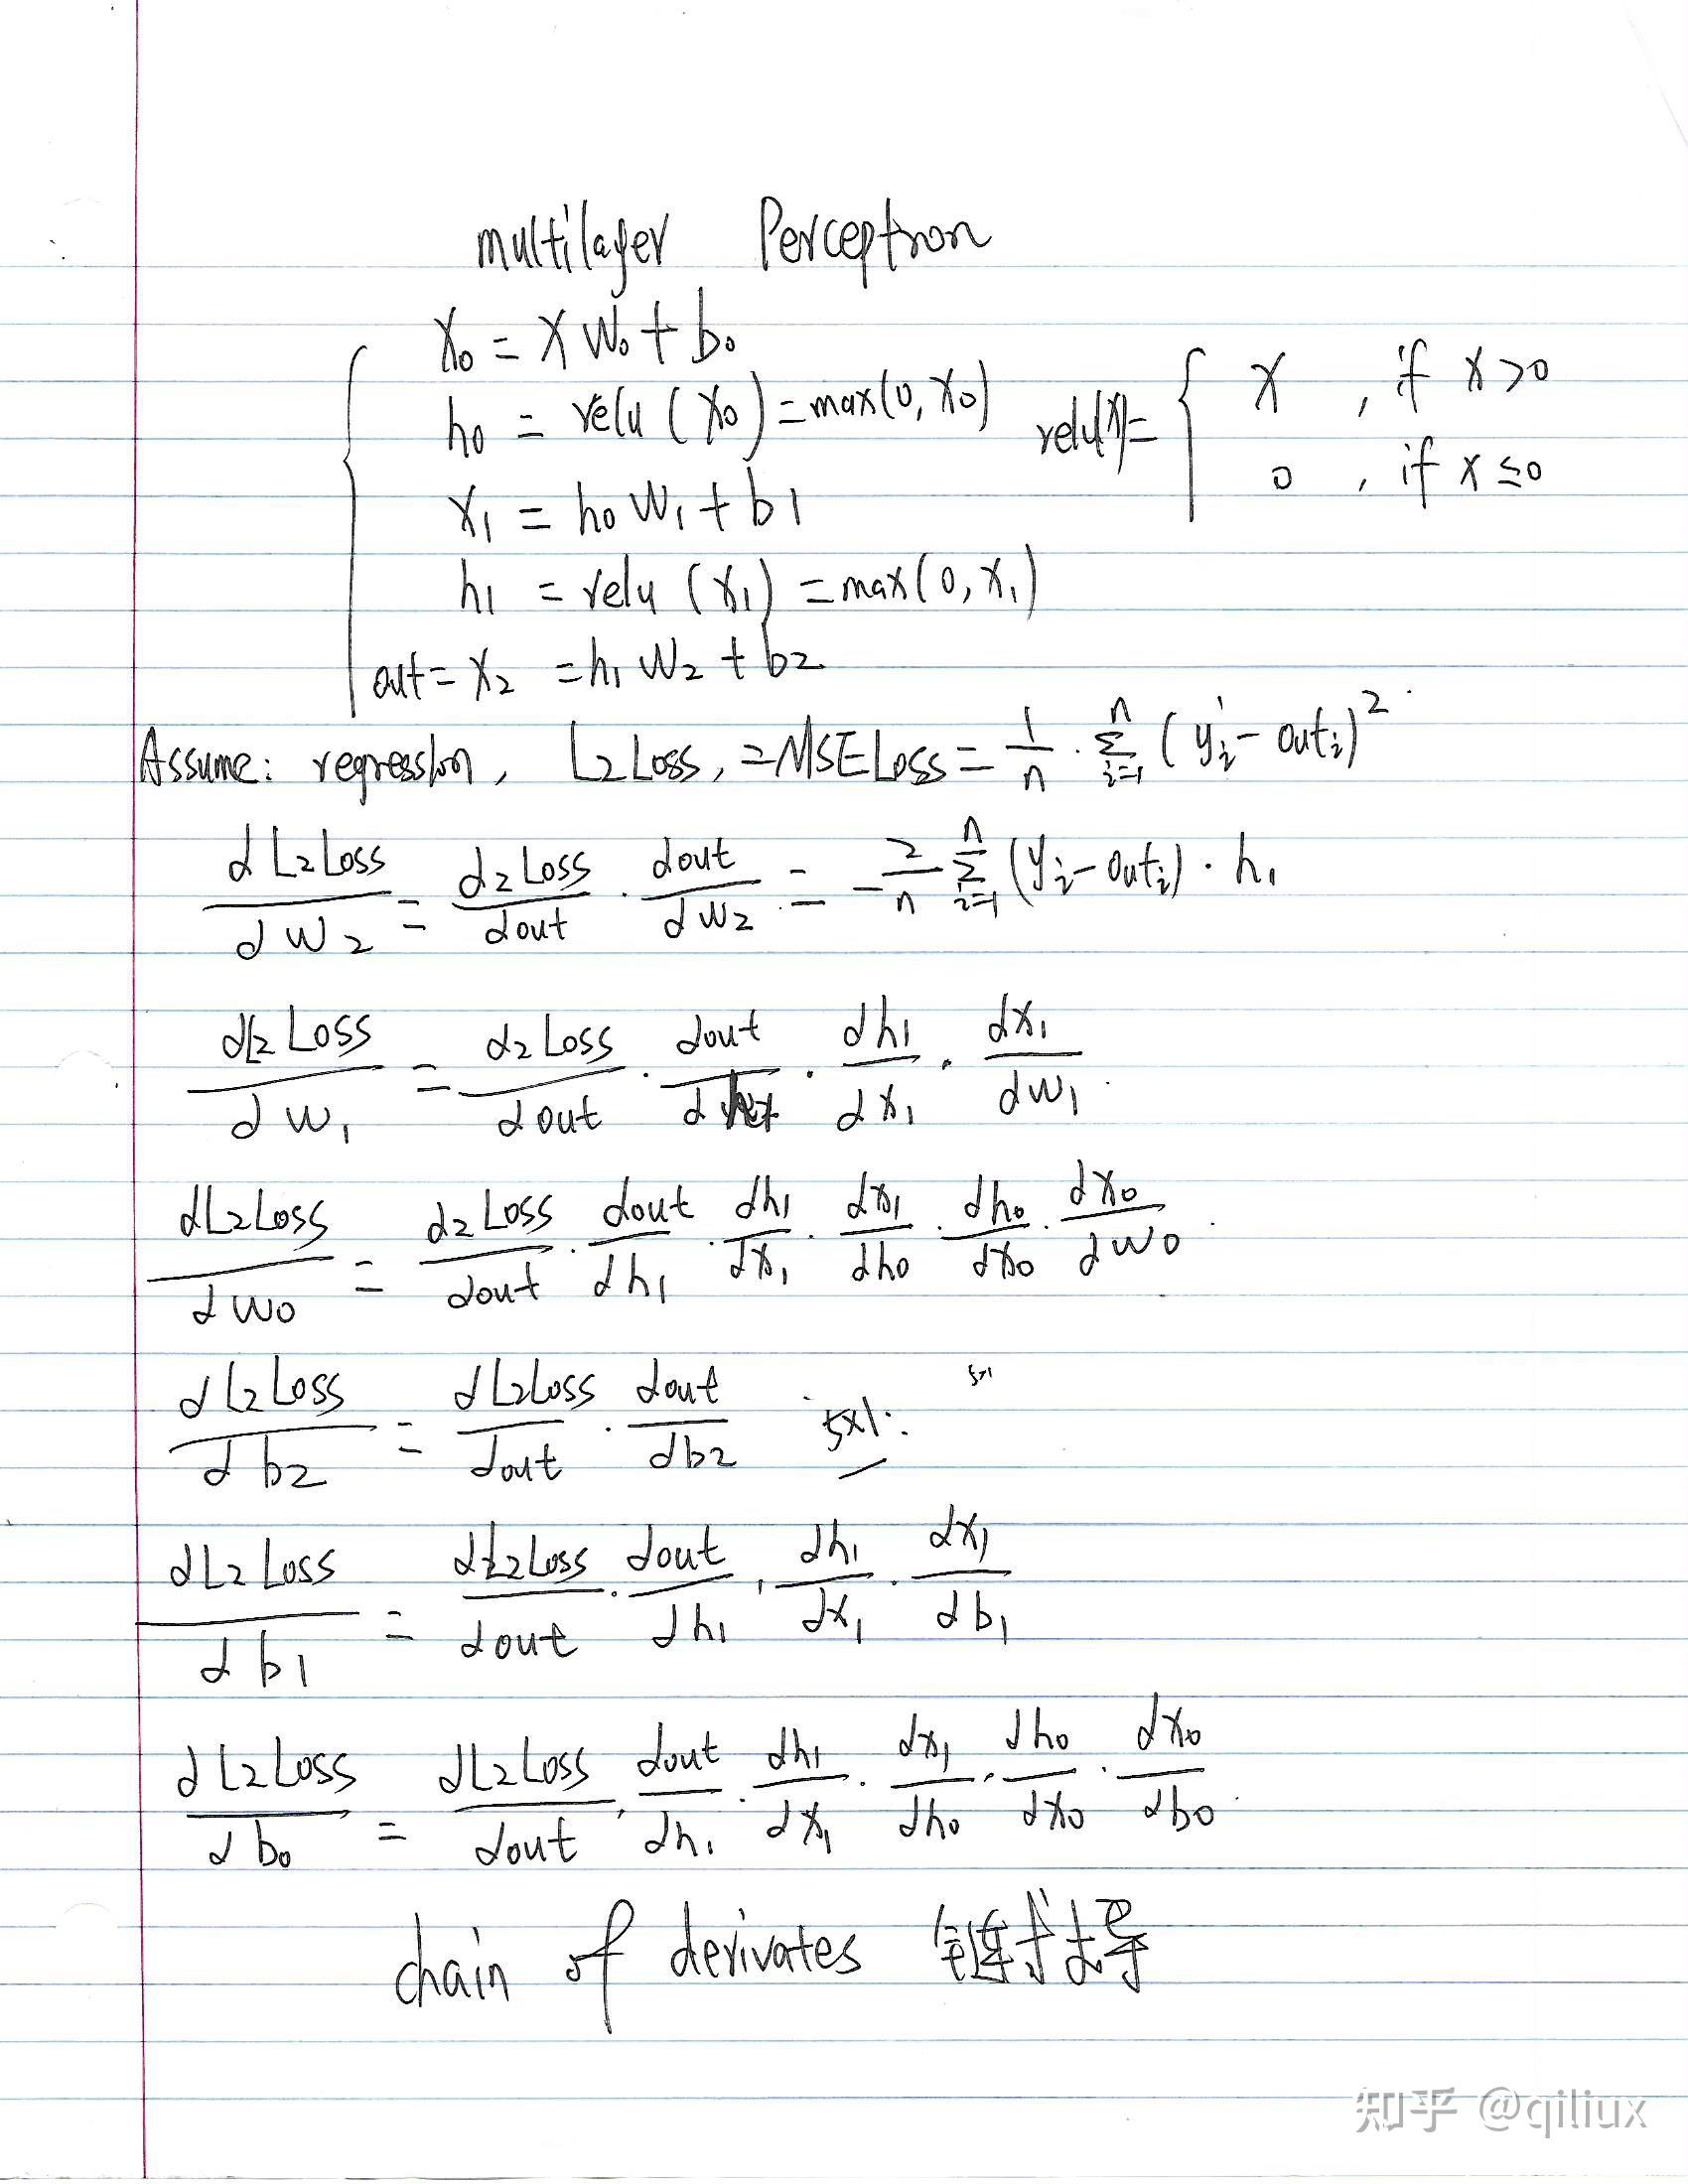 multilayer Perceptron
x₀ = x W₀ + b₀
h₀ = relu (x₀) = max(0, x₀) relu(x) = { x , if x>0
0 , if x≤0
x₁ = h₀ W₁ + b1
h₁ = relu (x₁) = max(0, x₁)
out = x₂ = h₁ W₂ + b₂
Assume: regression, L2 Loss, = MSE Loss = 1/n · Σᵢ₌₁ⁿ (yᵢ' - outᵢ)²
dL2Loss/dW₂ = d2Loss/dout · dout/dW₂ = -2/n Σᵢ₌₁ⁿ (yᵢ - outᵢ) · h₁
dL2Loss/dW₁ = d2Loss/dout · dout/d · dh₁/dx₁ · dx₁/dW₁
dL2Loss/dW₀ = d2Loss/dout · dout/dh₁ · dh₁/dx₁ · dx₁/dh₀ · dh₀/dx₀ · dx₀/dW₀
dL2Loss/db₂ = dL2Loss/dout · dout/db₂ 5x1.
dL2Loss/db₁ = dL2Loss/dout · dout/dh₁ · dh₁/dx₁ · dx₁/db₁
dL2Loss/db₀ = dL2Loss/dout · dout/dh₁ · dh₁/dx₁ · dx₁/dh₀ · dh₀/dx₀ · dx₀/db₀
chain of derivates 链式求导
知乎 @qiliux